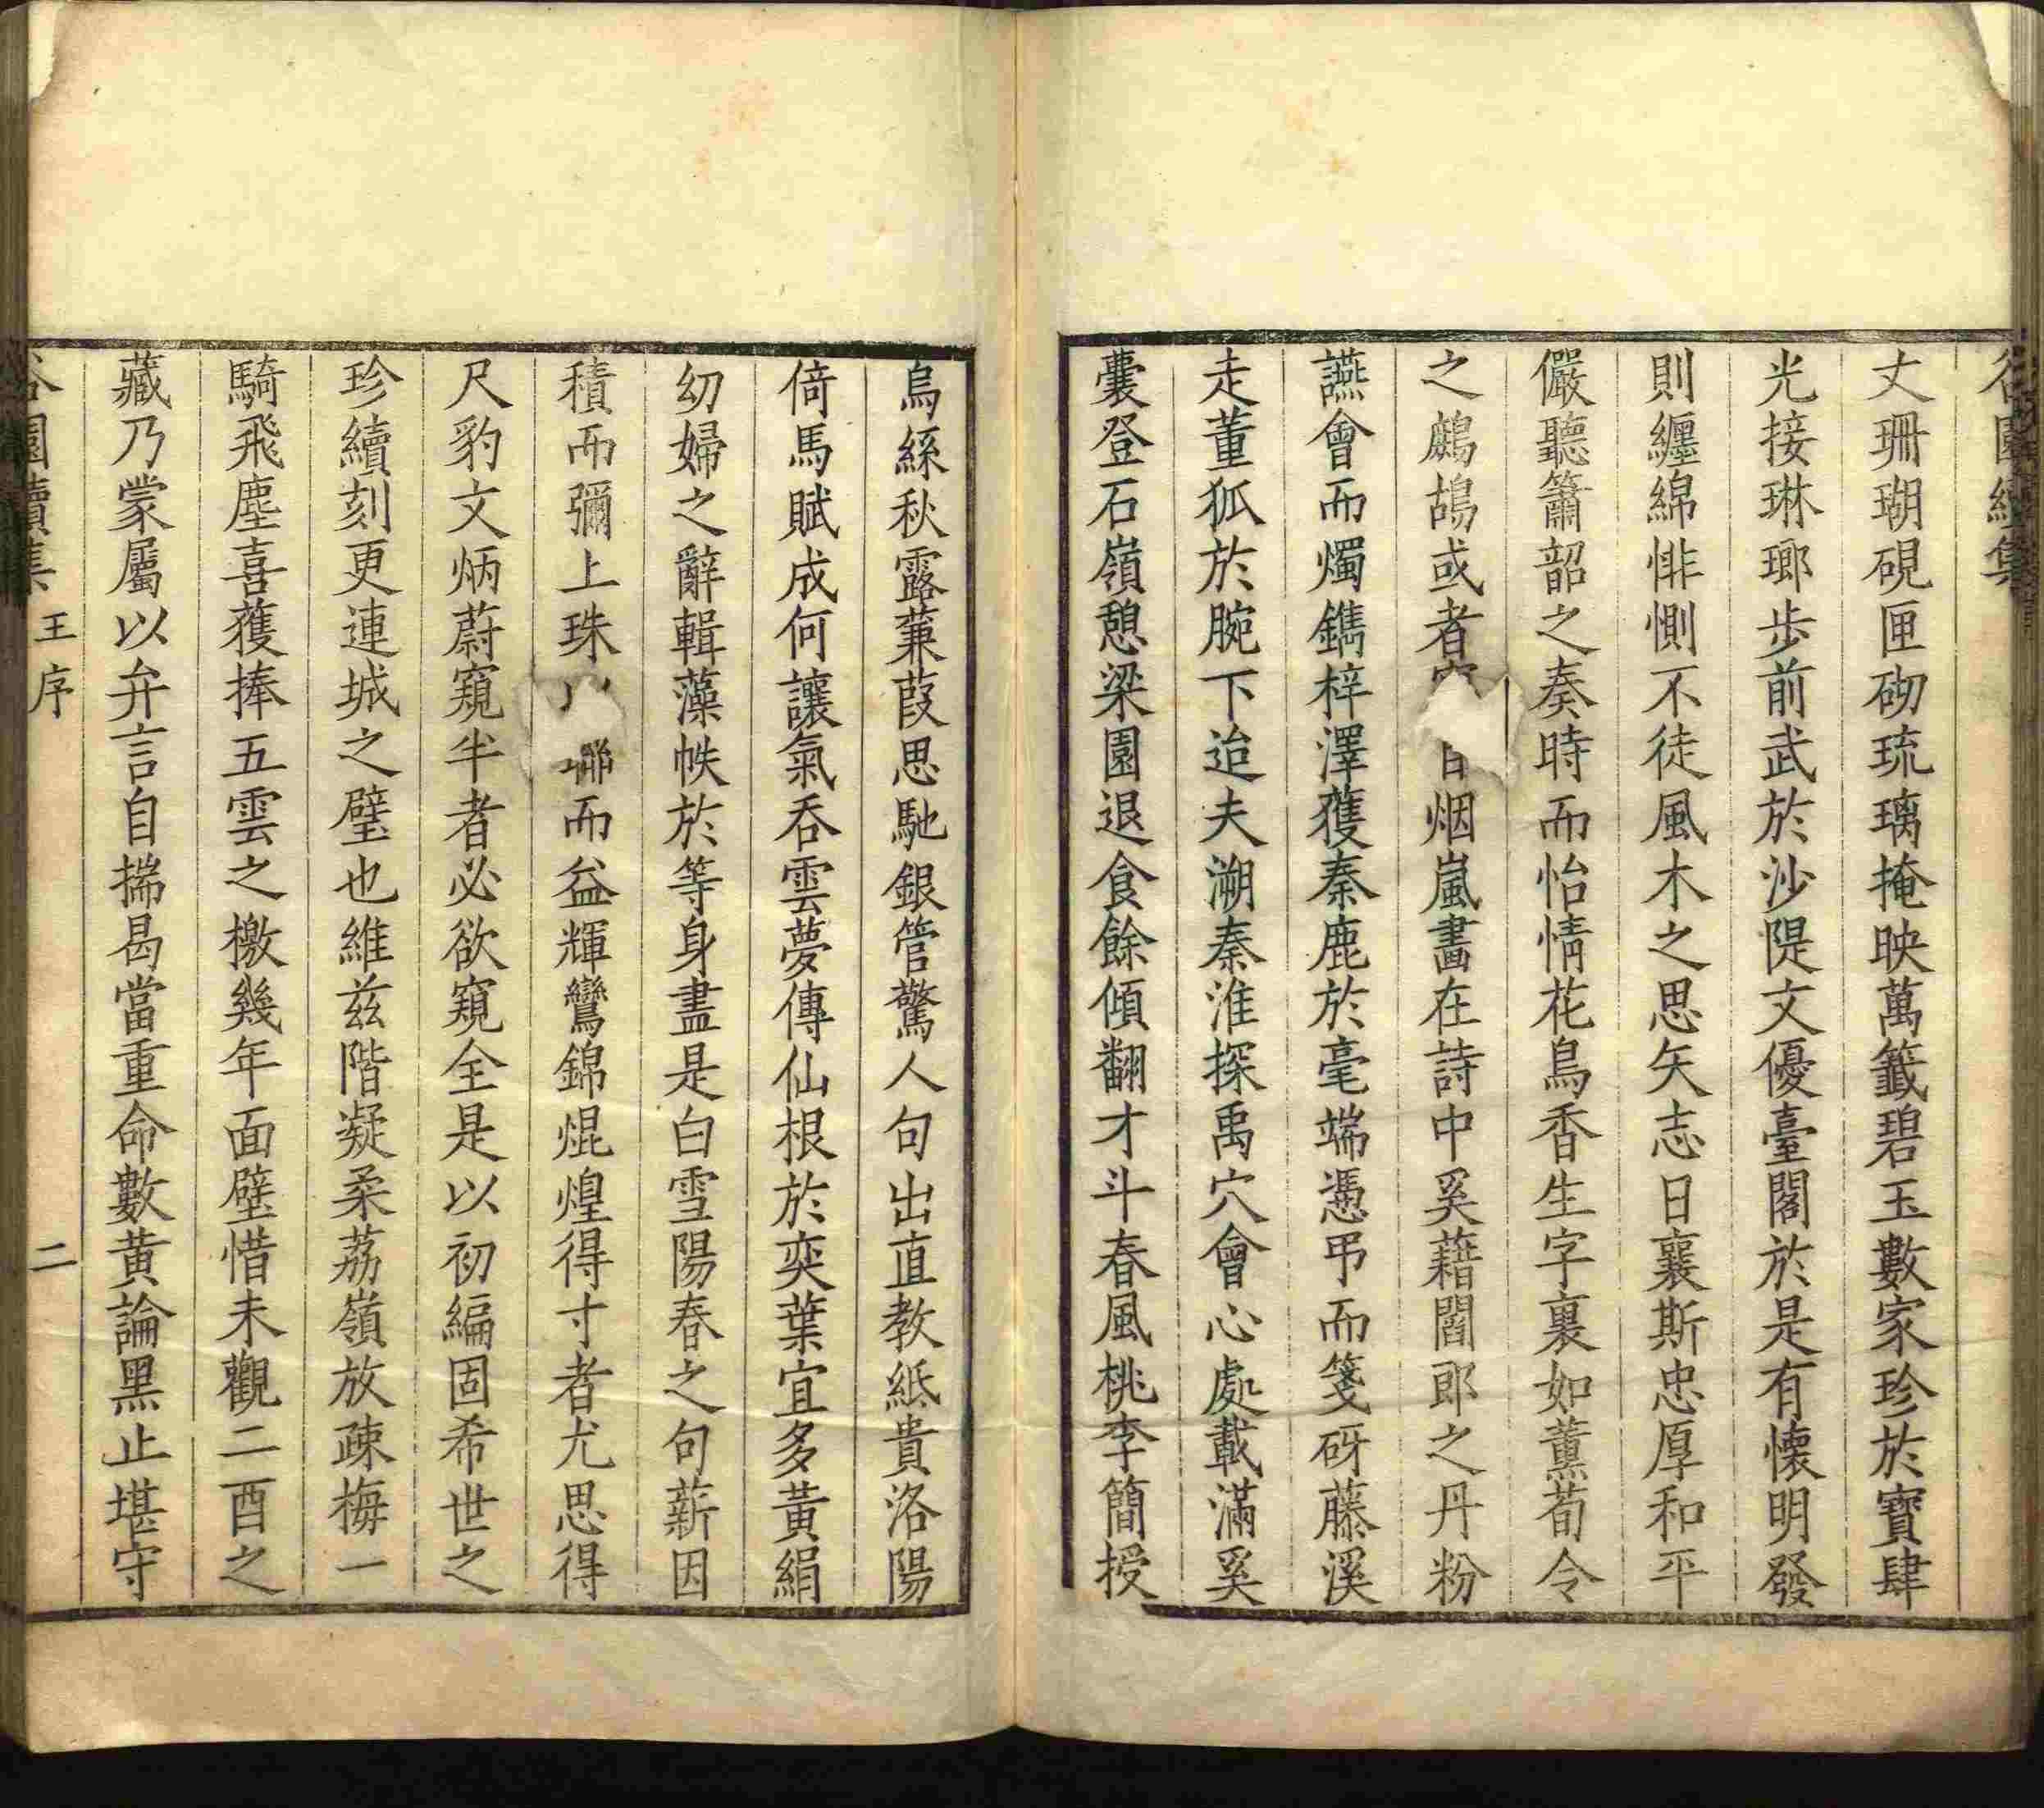 丈珊瑚硯匣砌琉璃掩映萬籤碧玉數家珍於寶肆
光接琳瑯步前武於沙隄文優臺閣於是有懷明發
則纏綿悱惻不徒風木之思矢志日襄斯忠厚和平
儼聽簫韶之奏時而怡情花鳥香生字裏如薰荀令
之鷓鴣或者烟嵐畵在詩中奚藉閻郎之丹粉
讌會而燭鐫梓澤獲秦鹿於毫端憑弔而箋砑藤溪
走董狐於腕下迨夫溯秦淮探禹穴會心處載滿奚
囊登石嶺憩梁園退食餘傾翻才斗春風桃李簡授
烏絲秋露蒹葭思馳銀管驚人句出直教紙貴洛陽
倚馬賦成何讓氣吞雲夢傳仙根於奕葉宜多黃絹
幼婦之辭輯藻帙於等身盡是白雪陽春之句薪因
積而彌上珠以聯而益輝鸞錦焜煌得寸者尤思得
尺豹文炳蔚窺半者必欲窺全是以初編固希世之
珍續刻更連城之璧也維兹階凝柔荔嶺放疎梅一
騎飛塵喜獲捧五雲之檄幾年面壁惜未觀二酉之
藏乃蒙屬以弁言自揣曷當重命數黃論黑止堪守
園續集 王序 二